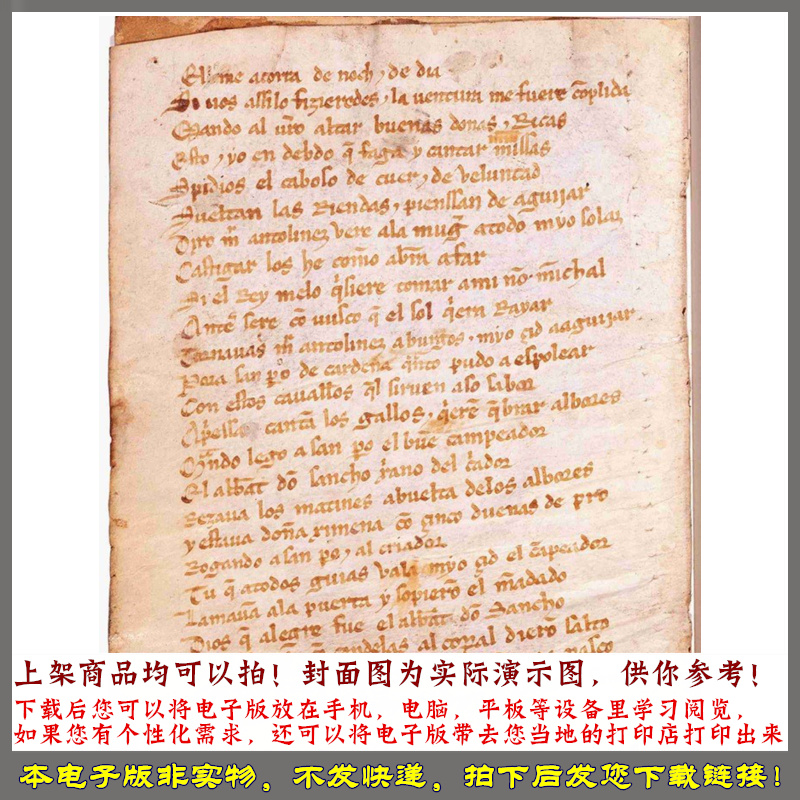 Elle me acorra de noch ⁊ de dia
Si vos assilo fizieredes ⁊ la ventura me fuere cōplida
Mando al vr̄o altar buenas donas ⁊ Ricas
Esto ⁊ yo en debdo q̄ faga y cantar mill missas
Spidios el caboso de cuer ⁊ de veluntad
Sueltan las Riendas ⁊ pienssan de aguijar
Dixo m̄ antolinez vere ala mugr̄ atodo myo solaz
Castigar los he com̄o abrā a far
Si el Rey melo q̄siere tomar ami no m̄ minchal
Antes sere cō vusco q̄ el sol q̄era Rayar
Tornauas m̄ antolinez a burgos ⁊ myo çid aaguijar
Pora san po de cardena q̄nto pudo a espolear
Con estos cauallos q̄l siruen aso sabor
Ap̄essa cantā los gallos ⁊ q̄erē q̄brar albores
Q̄ndo lego a san po el buē campeador
El abbat dō sancho x̄ano del c̄ador
Rezaua los matines abuelta delos albores
y estaua doña ximena cō çinco duenas de pro
Rogando a san po ⁊ al criador
Tu q̄ atodos guias val a myo çid el cāpeador
Lamauā ala puerta y sopierō el mādado
Dios q̄ alegre fue el abbat dō Sancho
candelas al corral dierō salto
上架商品均可以拍！封面图为实际演示图，供你参考！
下载后您可以将电子版放在手机，电脑，平板等设备里学习阅览，
如果您有个性化需求，还可以将电子版带去您当地的打印店打印出来
本电子版非实物，不发快递，拍下后发您下载链接！